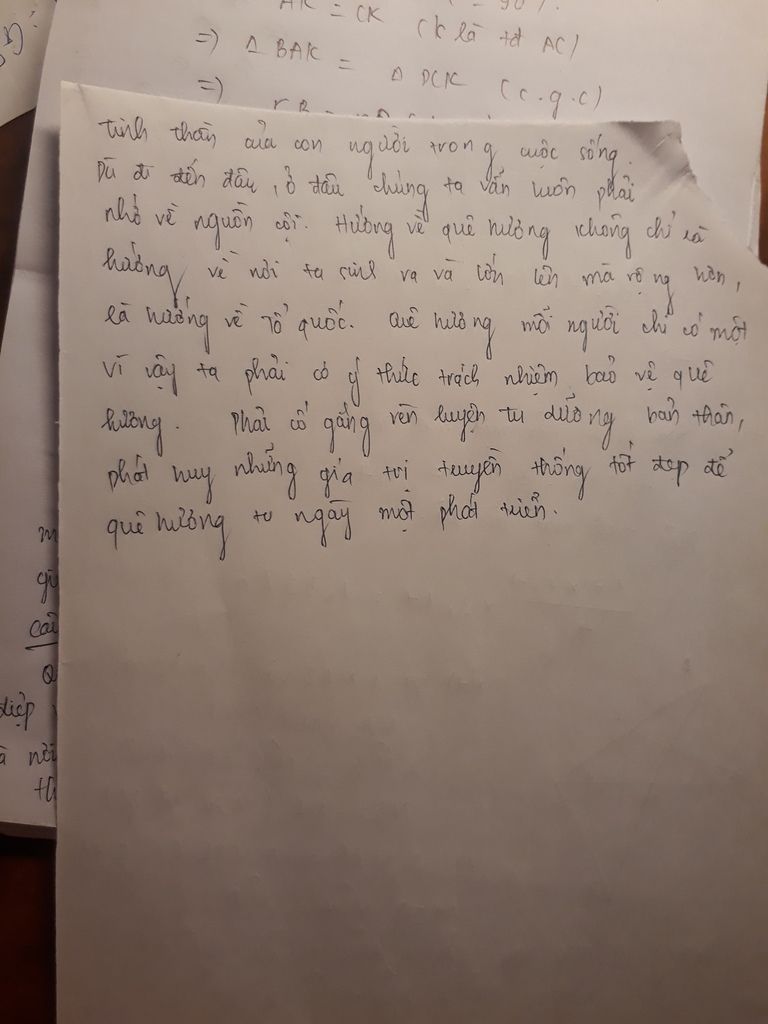 AK = CK (K là tđ AC)
=) Δ BAK = Δ DCK (c.g.c)
=)
tinh thần của con người trong cuộc sống.
Dù đi đến đâu, ở đâu chúng ta vẫn luôn phải
nhớ về nguồn cội. Hướng về quê hương không chỉ là
hướng về nơi ta sinh ra và lớn lên mà rộng hơn,
là hướng về Tổ quốc. Quê hương mỗi người chỉ có một
vì vậy ta phải có ý thức trách nhiệm bảo vệ quê
hương. Phải cố gắng rèn luyện tu dưỡng bản thân,
phát huy những giá trị truyền thống tốt đẹp để
quê hương ta ngày một phát triển.
điệp